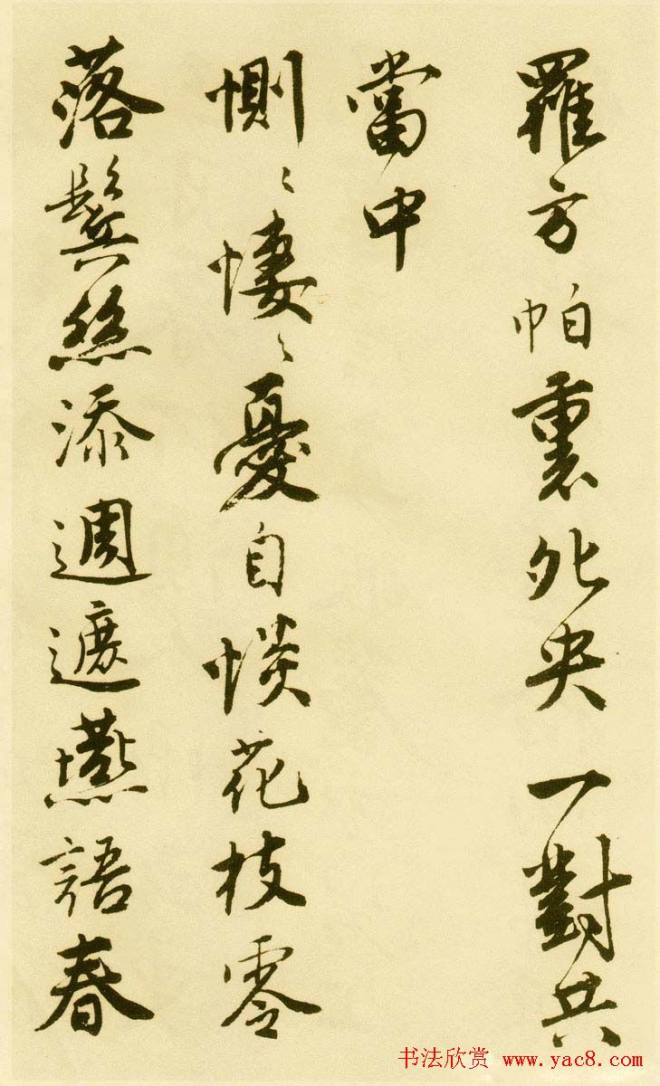 羅方帕裹夗央一對共
當中
惻〻悽〻憂自惔花枝零
落鬢絲添週遮燕語春
书法欣赏 www.yac8.com